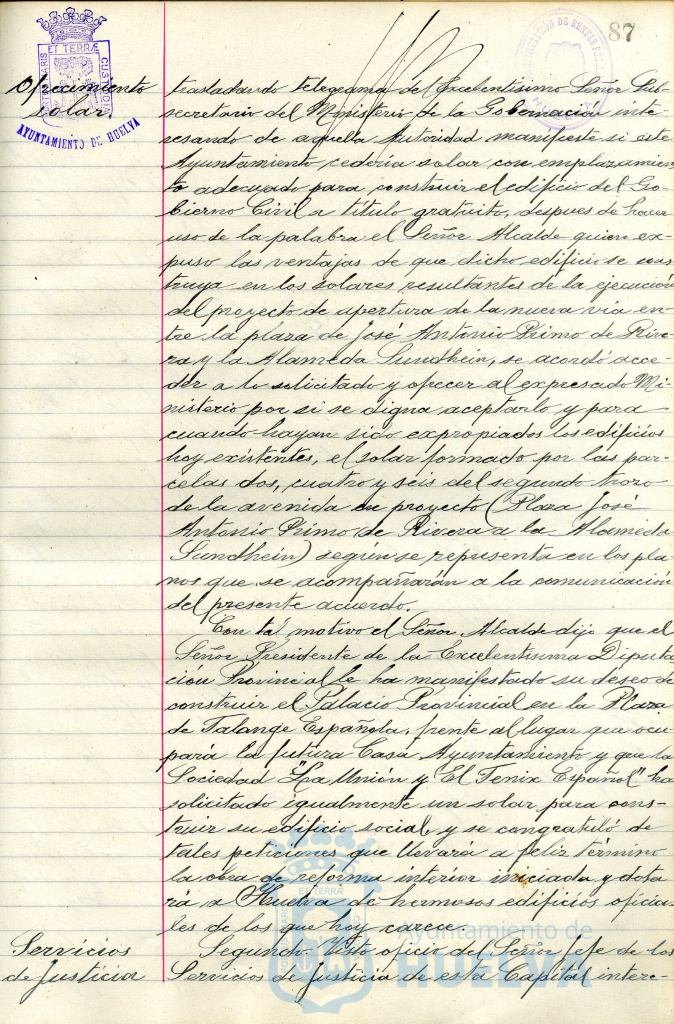 87
PORTUS MARIS ET TERRÆ CUSTODIA
AYUNTAMIENTO DE HUELVA
Ofrecimiento
solar.
trasladando telegrama del Excelentisimo Señor Sub-
secretario del Ministerio de la Gobernación inte-
resando de aquella Autoridad manifieste si este
Ayuntamiento cederia solar con emplazamien
to adecuado para construir el edificio del Go-
bierno Civil a titulo gratuito, despues de hacer
uso de la palabra el Señor Alcalde quien ex-
puso las ventajas de que dicho edificio se cons
truya en los solares resultantes de la ejecución
del proyecto de apertura de la nueva via en-
tre la plaza de José Antonio Primo de Rive-
ra y la Alameda Sundhein, se acordó acce-
der a lo solicitado y ofrecer al expresado Mi-
nisterio por si se digna aceptarlo y para
cuando hayan sido expropiados los edificios
hoy existentes, el solar formado por las par-
celas dos, cuatro y seis del segundo trozo
de la avenida en proyecto (Plaza José
Antonio Primo de Rivera a la Alameda
Sundhein) según se representa en los pla-
nos que se acompañarán a la comunicación
del presente acuerdo.
Con tal motivo el Señor Alcalde dijo que el
Señor Presidente de la Excelentisima Diputa
cion Provincial le ha manifestado su deseo de
construir el Palacio Provincial en la Plaza
de Falange Española, frente al lugar que ocu-
pará la futura Casa Ayuntamiento y que la
Sociedad "La Unión y El Fenix Español" ha
solicitado igualmente un solar para cons-
truir su edificio social, y se congratuló de
tales peticiones que llevará a feliz término
la obra de reforma interior iniciada y dota
rá a Huelva de hermosos edificios oficia-
les de los que hoy carece.
Servicios
de Justicia
Segundo. Visto oficio del Señor Jefe de los
Servicios de Justicia de esta Capital intere-
Ayuntamiento de
HUELVA